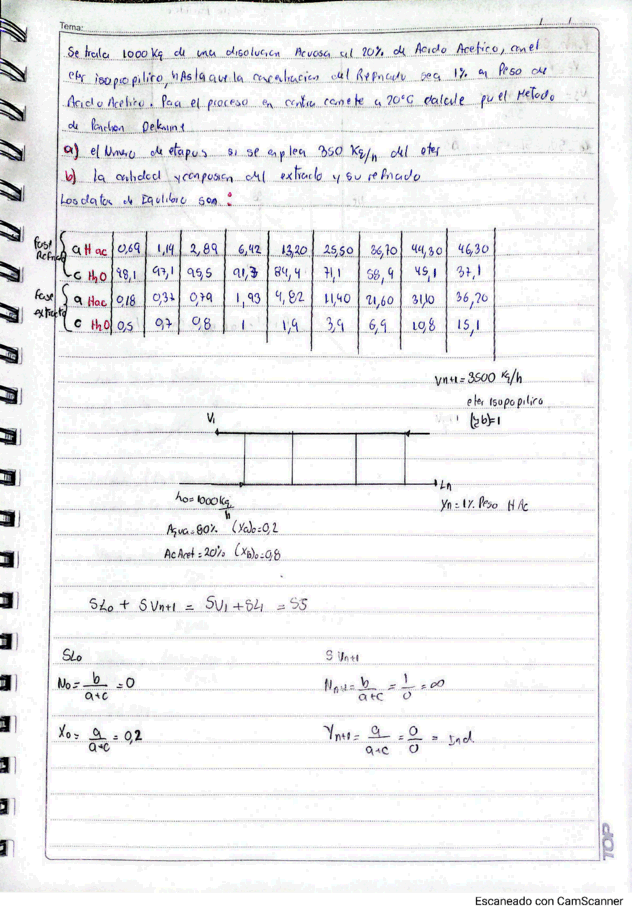 Tema: / /
Se trata 1000 Kg de una disolucion Acuosa al 20% de Acido Acetico, con el
eter isopropilico, hAsta que la concentracion del Refinado sea 1% en Peso de
Acido Acetico. Para el proceso en contra corriente a 20°C calcule por el Metodo
de Ponchon
a) el Numero de etapas si se emplea 350 Kg/h del eter
b) la cantidad y composicion del extracto y su refinado
Los datos de Equilibrio son:
fase Refina
a Hac 0,69 1,14 2,89 6,42 13,20 25,50 36,70 44,30 46,30
c H2O 98,1 97,1 95,5 91,7 84,4 71,1 58,9 45,1 37,1
fase extracto
a Hac 0,18 0,37 0,79 1,93 4,82 11,40 21,60 31,10 36,20
c H2O 0,5 0,7 0,8 1 1,9 3,9 6,9 10,8 15,1
Vn+1 = 3500 Kg/h
eter isopopilico
(zb)=1
V1
Ln
ho=1000 Kg/h
Yn=1% Peso HAc
Agua=80% (Xa)o=0,2
Ac Acet=20% (Xb)o=0,8
SLo + SVn+1 = SV1 + SL1 = SS
SLo
S Vn+1
No = b/a+c = 0
Nn+1 = b/a+c = 1/0 = ∞
Xo = a/a+c = 0,2
Yn+1 = a/a+c = 0/0 = Ind
TOP
Escaneado con CamScanner